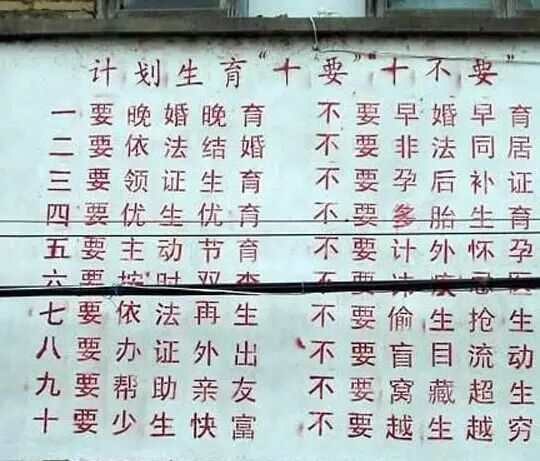 计划生育"十要""十不要"
一要晚婚晚育 不要早婚早育
二要依法结婚 不要非法同居
三要领证生育 不要孕后补证
四要优生优育 不要多胎生育
五要主动节育 不要计外怀孕
六要按时双查 不要讳疾忌医
七要依法再生 不要偷生抢生
八要办证外出 不要盲目流动
九要帮助亲友 不要窝藏超生
十要少生快富 不要越生越穷